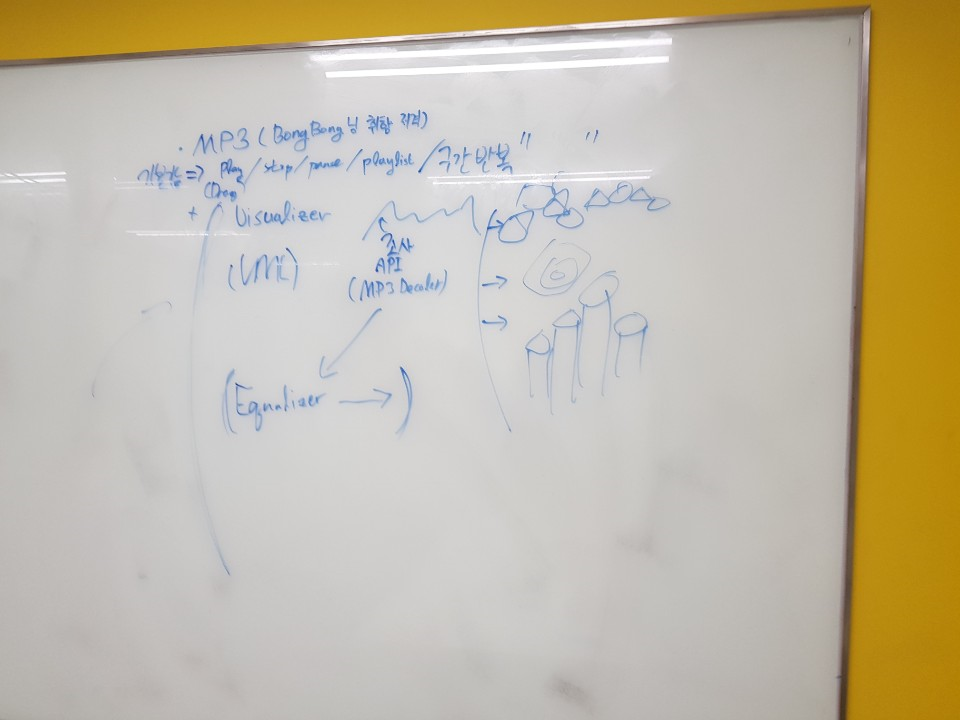 · MP3 (BongBong님 취향 저격)
기본기능 => Play / stop / pause / playlist / 구간 반복 " "
(Drag
+ Visualizer
조사
API
(MP3 Decoder)
(Equalizer → )